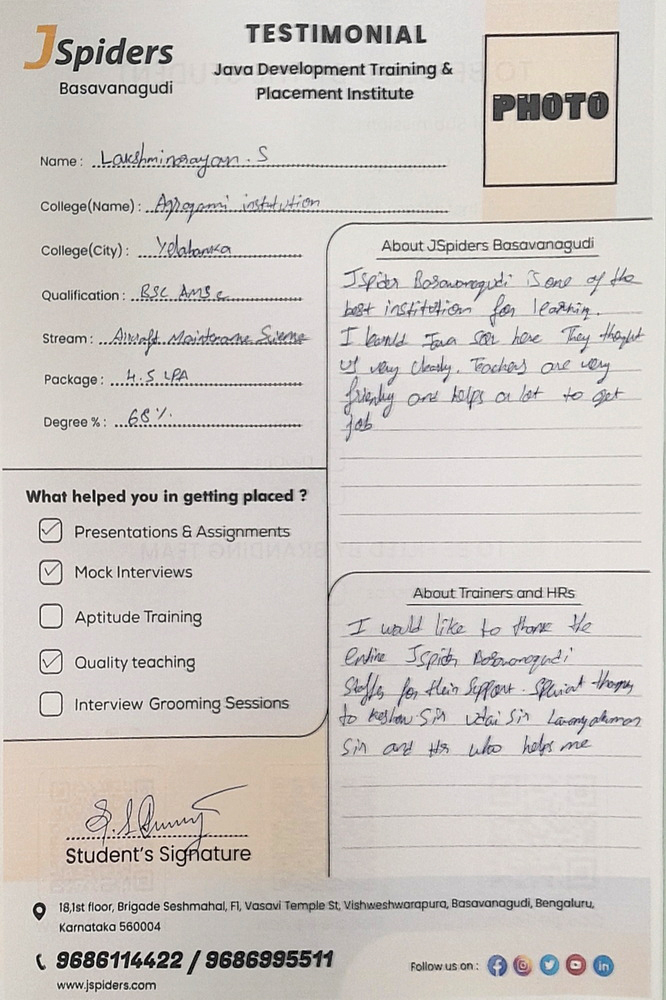 JSpiders
Basavanagudi
TESTIMONIAL
Java Development Training &
Placement Institute
PHOTO
Name : Lakshminarayan . S
College(Name) : Agragami institution
College(City) : Yelahanka
Qualification : BSC AMSc
Stream : Aircraft Maintenance Science
Package : 4.5 LPA
Degree % : 68%
What helped you in getting placed ?
Presentations & Assignments
Mock Interviews
Aptitude Training
Quality teaching
Interview Grooming Sessions
Student's Signature
About JSpiders Basavanagudi
JSpider Basavanagudi is one of the
best institution for learning.
I Java here They thought
us very clearly. Teachers are very
friendly and helps a lot to get
job
About Trainers and HRs
I would like to thank the
entire JSpider Basavanagudi
Staffes for their Support. thanks
to Keshav Sir Udai Sir
Sir and Hr who helps me
18,1st floor, Brigade Seshmahal, F1, Vasavi Temple St, Vishweshwarapura, Basavanagudi, Bengaluru,
Karnataka 560004
9686114422 / 9686995511
www.jspiders.com
Follow us on :